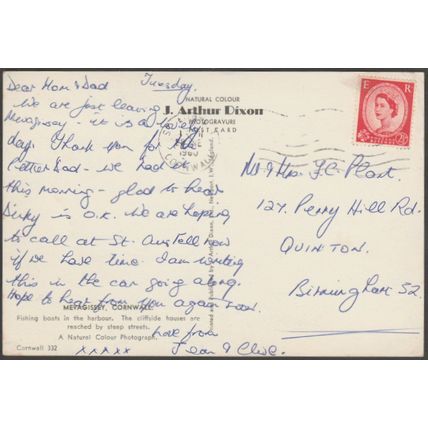 Dear Mom & Dad Tuesday.
We are just leaving
Mevagissey - it is a lovely
day. Thank you for the
letter Dad - we had it
this morning - glad to hear
Dicky is O.K. We are hoping
to call at St. Austell now
if we have time. I am writing
this in the car going along.
Hope to hear from you again soon.
love from
Jean & Clive.
xxxxx
NATURAL COLOUR
J. Arthur Dixon
PHOTOGRAVURE
POST CARD
CORNWALL
E R
Mr & Mrs. F.C. Plant.
127, Perry Hill Rd.
QUINTON.
Birmingham 32.
MEVAGISSEY, CORNWALL.
Fishing boats in the harbour. The cliffside houses are
reached by steep streets.
A Natural Colour Photograph.
Cornwall 332